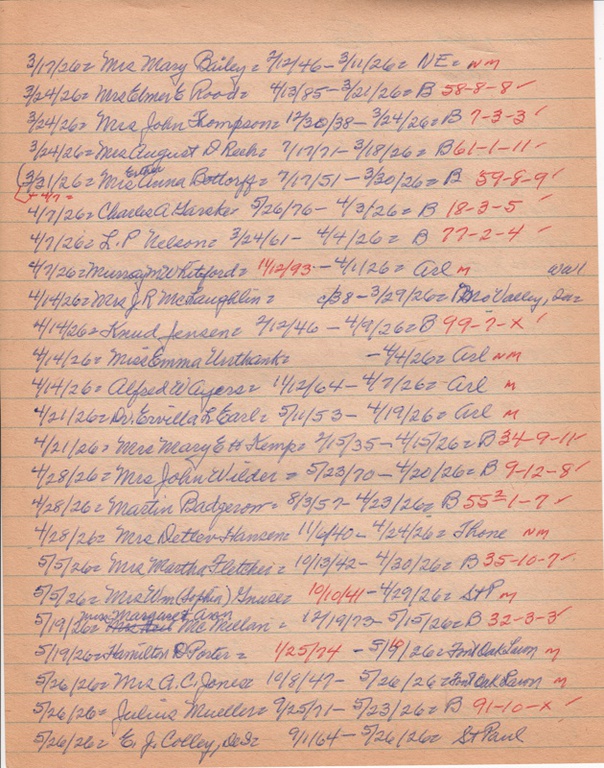 3/17/26= Mrs Mary Bailey = 2/12/46 - 3/11/26= NE= NM
3/24/26= Mrs Elmer E Rood= 4/13/85 - 3/21/26= B 58-8-8 ✓
3/24/26= Mrs John Thompson= 12/30/38 - 3/24/26= B 7-3-3 ✓
3/24/26= Mrs August D = 7/17/71 - 3/18/26= B 61-1-11 ✓
Esther
(3/31/26= Mrs Anna Bottorff= 7/17/51 - 3/30/26= B 59-8-9 ✓
+ 4/7=
4/7/26= Charles A = 5/26/76 - 4/3/26= B 18-3-5 ✓
4/7/26= L.P Nelson= 3/24/61 - 4/4/26= B 77-2-4 ✓
4/7/26= Murray M Whitford= 11/12/93 - 4/1/26= Arl M WW1
4/14/26= Mrs J R McLaughlin= c/38 - 3/29/26= Mo Valley, Ia=
4/14/26= Knud Jensen= 2/12/46 - 4/9/26= B 99-7-X ✓
4/14/26= Miss Emma Unthank= - 4/4/26= Arl NM
4/14/26= Alfred W Ayers= 11/12/64 - 4/7/26= Arl M
4/21/26= Dr. Ervilla L Earl= 5/11/53 - 4/19/26= Arl M
4/21/26= Mrs Mary E H Kemp= 2/15/35 - 4/15/26= B 34-9-11 ✓
4/28/26= Mrs John Wilder = 5/23/70 - 4/20/26= B 9-12-8 ✓
4/28/26= Martin Badgerow= 8/3/57 - 4/23/26= B 55²-1-7 ✓
4/28/26= Mrs Detlev Hansen= 11/6/40 - 4/24/26= Thone NM
5/5/26= Mrs Martha Fletcher= 10/13/42 - 4/30/26= B 35-10-7 ✓
5/5/26= Mrs Wm (Sophia) = 10/10/41 - 4/29/26= StP M
Miss Margaret Avon
5/19/26= McMillan= 12/19/73 - 5/15/26= B 32-3-3 ✓
5/19/26= Hamilton D Porter= 1/25/74 - 5/ /26= Font Oak Lawn M
5/26/26= Mrs A.C. Jones 10/8/47 - 5/26/26= Font Oak Lawn M
5/26/26= Julius Mueller= 9/25/71 - 5/23/26= B 91-10-X ✓
5/26/26= E. J. Colley, = 9/1/64 - 5/26/26= St Paul